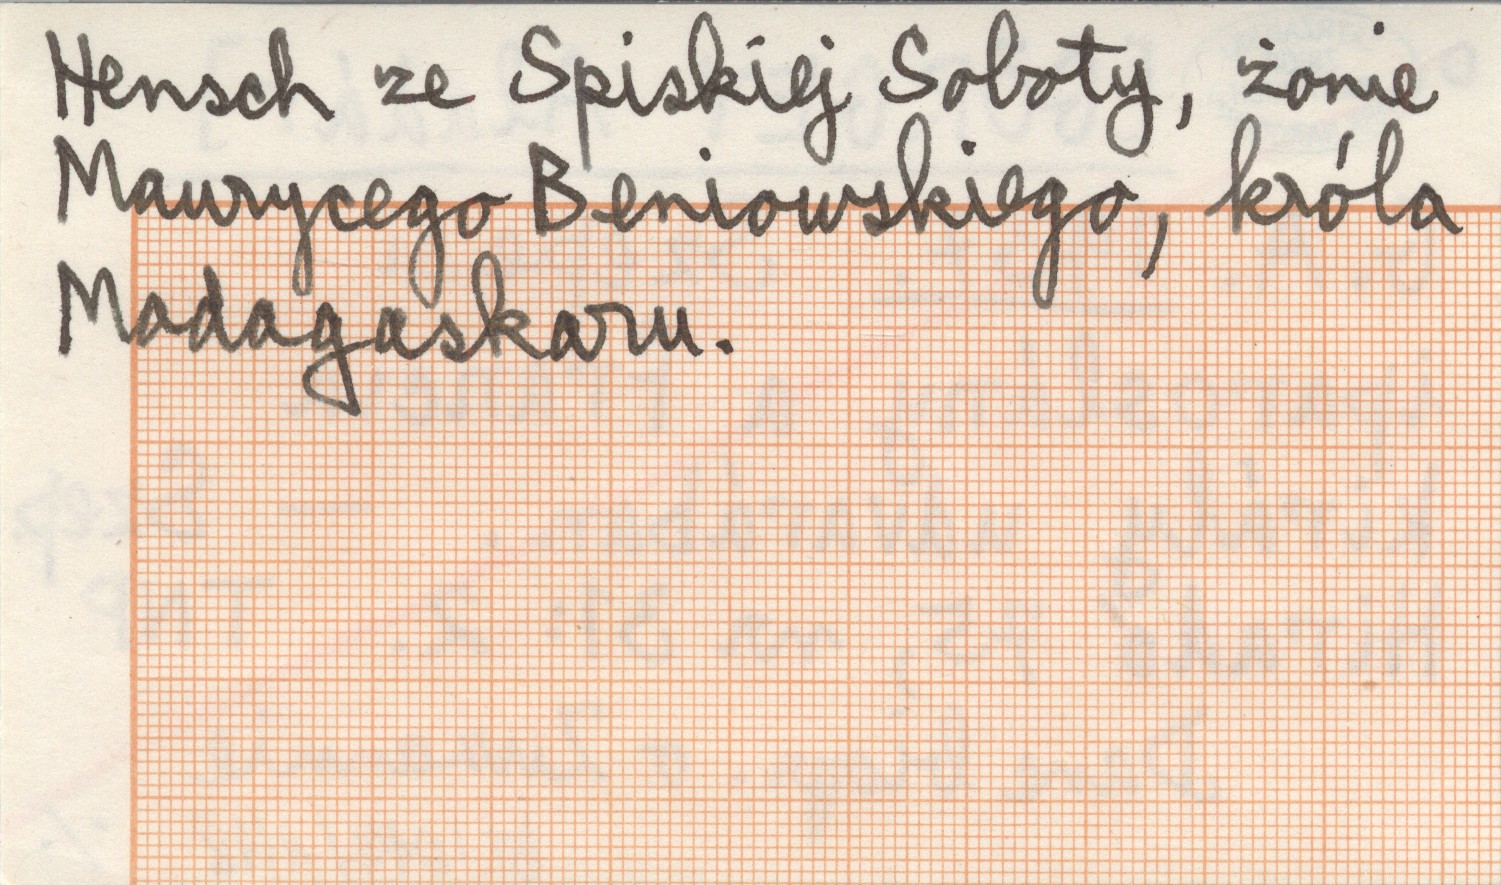 Hensch ze Spiskiej Soboty, żonie
Maurycego Beniowskiego, króla
Madagaskaru.